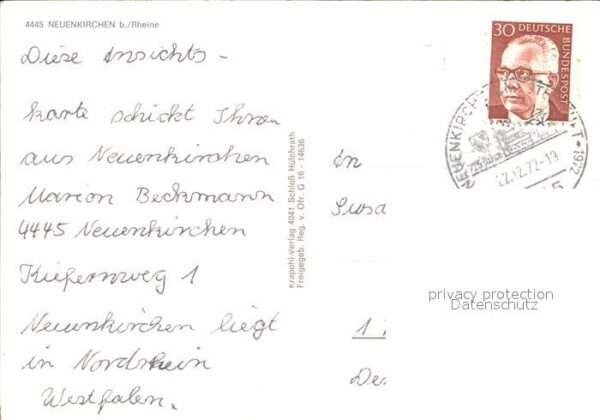 4445 NEUENKIRCHEN b./Rheine
Diese Ansichts -
karte schickt Ihnen
aus Neuenkirchen
Marion Beckmann
4445 Neuenkirchen
Kiefernweg 1
Neuenkirchen liegt
in Nordrhein
Westfalen.
Krapohl-Verlag 4041 Schloß Hülchrath
Freigegeb. Reg. v. Ofr. G 16 - 14636
30 DEUTSCHE
BUNDESPOST
NEUENKIRCH
1972
725 Jahre
22.12.72-19
An
Susa
1
privacy protection
Datenschutz